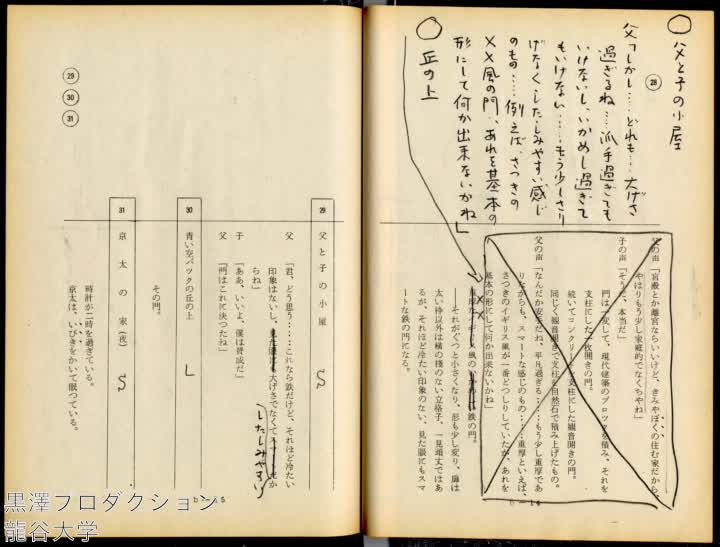 ○ 父と子の小屋
28
父「しかし……どれも…大げさ
過ぎるね…派手過ぎても
いけないし、いかめし過ぎて
もいけない……もう少しさり
げなくしたしみやすい感じ
のもの……例えば、さっきの
××風の門、あれを基本の
形にして何か出来ないかね」
○ 丘の上
父の声「宮殿とか離宮ならいいけど、きみやぼくの住む家だから、
やはりもう少し家庭的でなくちゃね」
子の声「そうだ、本当だ」
門は一変して、現代建築のブロックを積み、それを
支柱にした一枚開きの門。
続いてコンクリートを支柱にした観音開きの門。
同じく観音開きで支柱を自然石で積み上げたもの。
父の声「なんだか安天だね、平凡過ぎる……もう少し重厚であ
りながらも、スマートな感じのもの……重厚といえば、
さっきのイギリス風が一番どっしりしていたが、あれを
基本の形にして何か出来ないかね」
××
鉄の門。
――それがぐっと小さくなり、形も少し変り、扉は
太い枠以外は横の棧のない立格子、一見頑丈ではあ
るが、それほど冷たい印象のない、見た眼にもスマ
ートな鉄の門になる。
29
30
31
29 父と子の小屋
S
父「君、どう思う……これなら鉄だけど、それほど冷たい
印象はないし、見た眼にも大げさでなくて
したしみやすい
らね」
子「ああ、いいよ、僕は賛成だ」
父「門はこれに決ったね」
30 青い空バックの丘の上
L
その門。
31 京太の家(夜)
S
時計が二時を過ぎている。
京太は、いびきをかいて眠っている。
黒澤プロダクション
龍谷大学